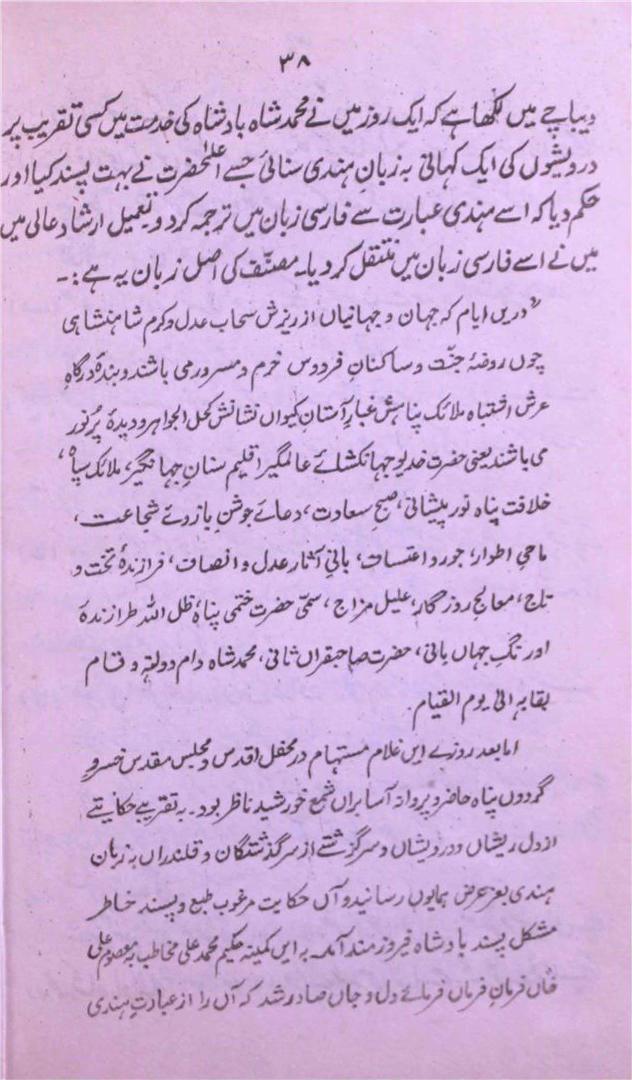 ۳۸
دیباچے میں لکھا ہے کہ ایک روز میں نے محمد شاہ بادشاہ کی خدمت میں کسی تقریب پر
درویشوں کی ایک کہانی بہ زبان ہندی سنائی جسے اعلٰحضرت نے بہت پسند کیا اور
حکم دیا کہ اسے ہندی عبارت سے فارسی زبان میں ترجمہ کر دو تعمیل ارشاد عالی میں
میں نے اسے فارسی زبان میں منتقل کر دیا۔ مصنّف کی اصل زبان یہ ہے:۔
"دریں ایام کہ جہان و جہانیاں از ریزش سحاب عدل و کرم شاہنشاہی
چوں روضۂ جنّت و ساکنانِ فردوس خرم و مسرور می باشند و بندۂ درگاہِ
عرش اشتباہ ملائک پناہش غبارِ آستان کیواں نشانش کحل الجواہر و دیدۂ پُر نور
می باشند یعنی حضرت خدیو جہانکشائے عالمگیر اقلیم ستانِ جہانگیر، ملائک سپاہ،
خلافت پناہ نور پیشانی، صبح سعادت، دعائے جوشنِ بازوئے شجاعت،
ماحیِ اطوار، جور و اعتساف، بانیِ آثار عدل و انصاف، فرازندۂ تخت و
تاج، معالجِ روزگار، علیل مزاج، سمیّ حضرت ختمی پناہ ظل اللہ طرازندۂ
اورنگِ جہاں بانی، حضرت صاحبقراں ثانی، محمد شاہ دام دولتہ و قام
بقابہ الیٰ یوم القیام۔
اما بعد روزے ایں غلام مستہام در محفل اقدس و مجلس مقدس خسروِ
گردوں پناہ حاضر و پروانہ آسا براں شمع خورشید ناظر بود۔ بہ تقریبے حکایتے
از دل ریشاں و درویشاں و سرگزشتے از سرگذشتگان و قلندراں بہ زبان
ہندی بعز عرض ہمایوں رسانید و آں حکایت مرغوب طبع و پسند خاطر
مشکل پسند بادشاہ فیروزمند آمد۔ بہ ایں کمینہ حکیم محمد علی مخاطب بہ معصوم علی
خاں فرمانِ فرماں فرمائے دل و جاں صادر شد کہ آں را از عبارتِ ہندی